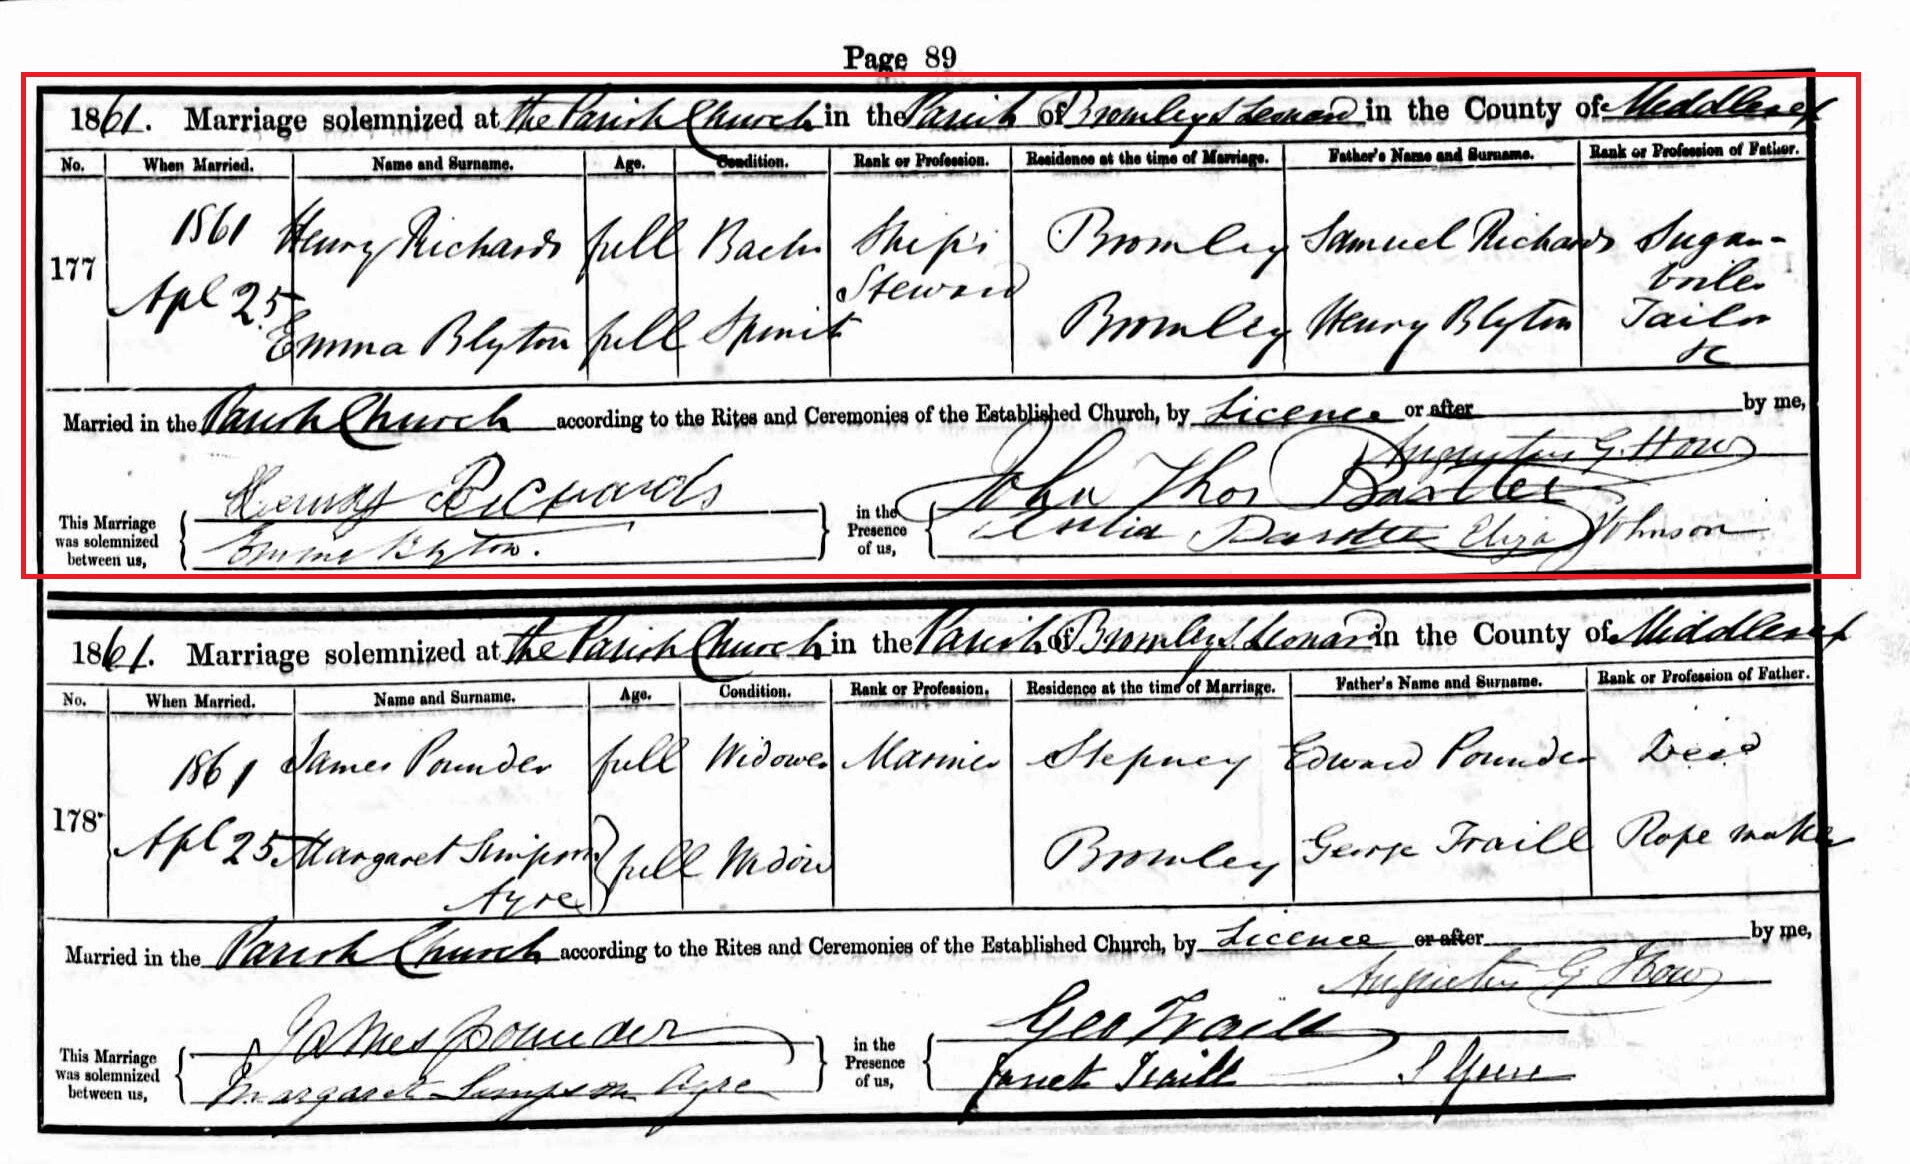 Page 89
1861. Marriage solemnized at the Parish Church in the Parish of Bromley S Leonard in the County of Middlesex
No. When Married. Name and Surname. Age. Condition. Rank or Profession. Residence at the time of Marriage. Father's Name and Surname. Rank or Profession of Father.
177 1861 Apl 25 Henry Richards full Bachr Ship's Steward Bromley Samuel Richards Sugar-boiler
Emma Blyton full Spinst Bromley Henry Blyton Tailor &c
Married in the Parish Church according to the Rites and Ceremonies of the Established Church, by Licence or after by me,
Augustus G. How
This Marriage was solemnized between us, Henry Richards in the Presence of us, John Thos
Emma Blyton. Eliza Johnson
1861. Marriage solemnized at the Parish Church in the Parish of Bromley S. Leonard in the County of Middlesex
No. When Married. Name and Surname. Age. Condition. Rank or Profession. Residence at the time of Marriage. Father's Name and Surname. Rank or Profession of Father.
178 1861 Apl 25 James Pounder full Widower Mariner Stepney Edward Pounder Dead
Margaret Simpson Ayre full Widow Bromley George Traill Rope maker
Married in the Parish Church according to the Rites and Ceremonies of the Established Church, by Licence or after by me,
Augustus G How
This Marriage was solemnized between us, James Pounder in the Presence of us, Geo Traill
Margaret Simpson Ayre Janet Traill